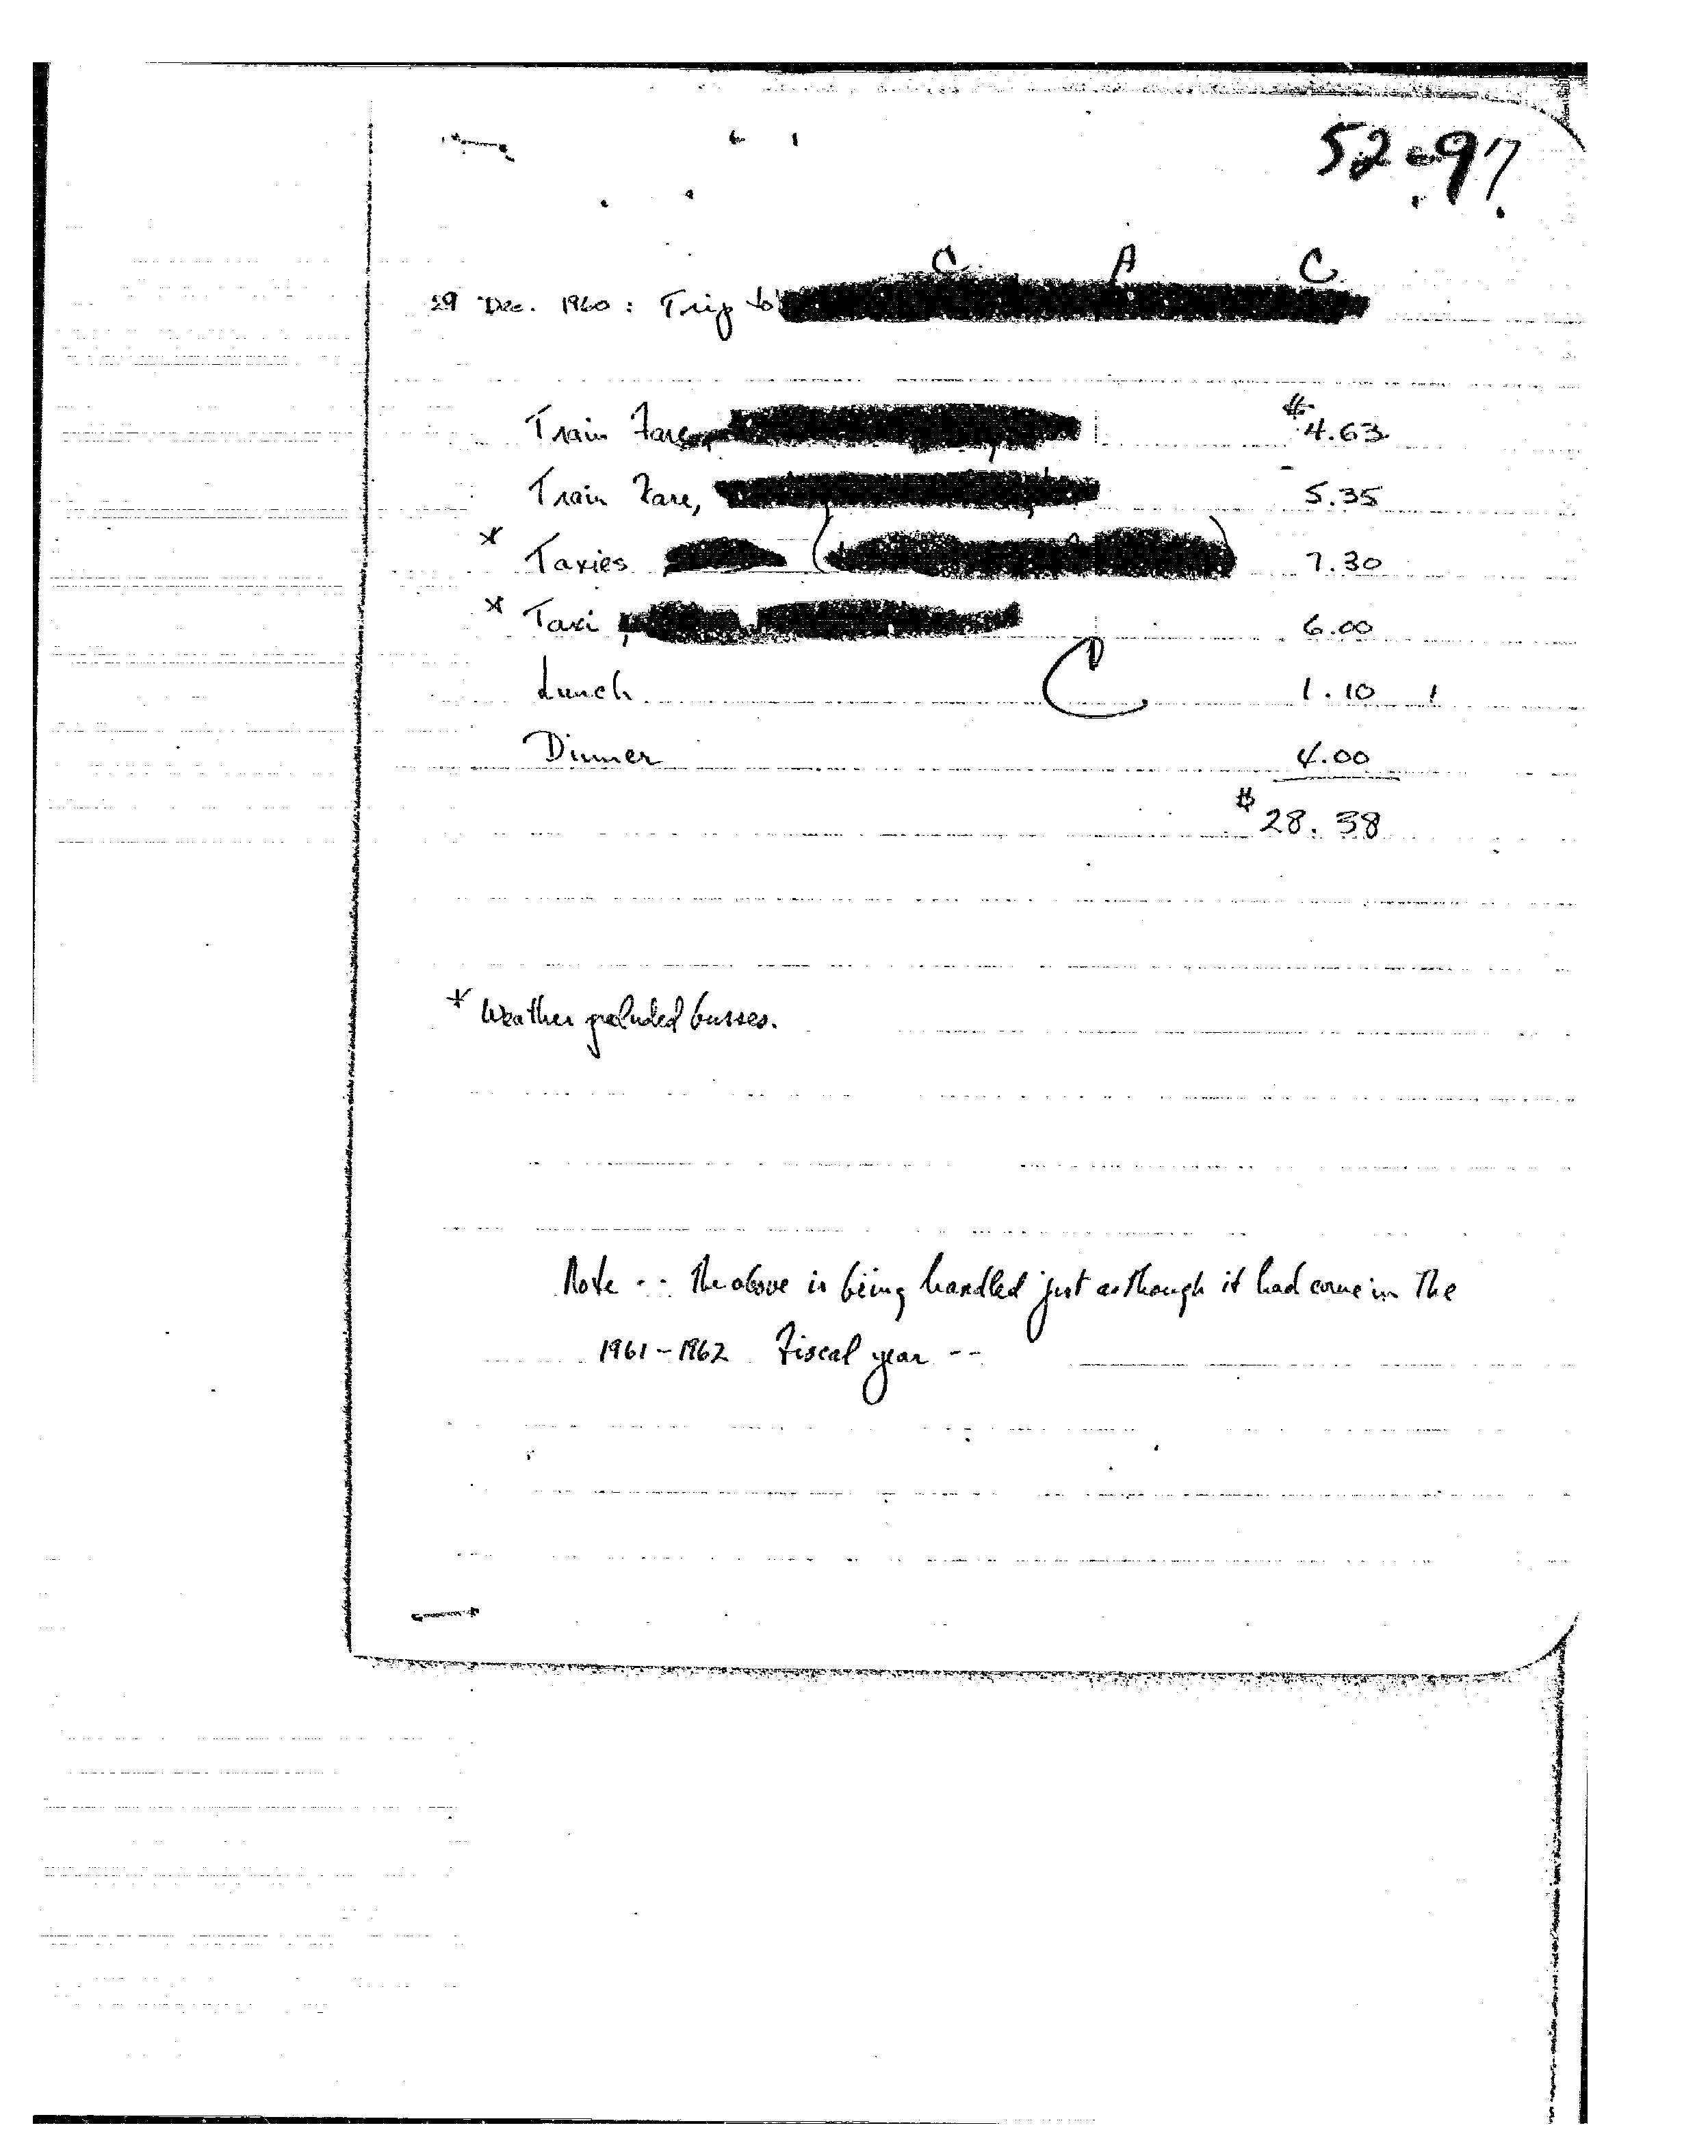 52-97
C A C
29 Dec. 1960: Trip to
Train Fare, $4.63
Train Fare, 5.35
* Taxies ( ) 7.30
* Taxi, 6.00
Lunch C 1.10
Dinner 4.00
$28.38
* Weather precluded busses.
Note -- The above is being handled just as though it had come in The
1961-1962 Fiscal year --